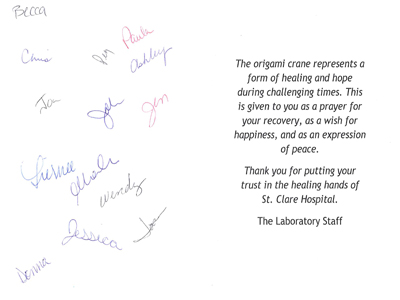 Becca
Paula
Chris
Ashley
Jen
Wendy
Jessica
Donna
The origami crane represents a
form of healing and hope
during challenging times. This
is given to you as a prayer for
your recovery, as a wish for
happiness, and as an expression
of peace.
Thank you for putting your
trust in the healing hands of
St. Clare Hospital.
The Laboratory Staff